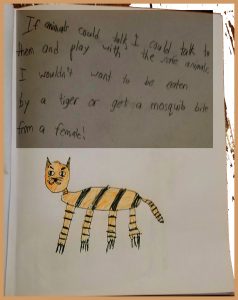 If animals could talk, I could talk to
them and play with the cute animals.
I wouldn't want to be eaten
by a tiger or get a mosquito bite
from a female!